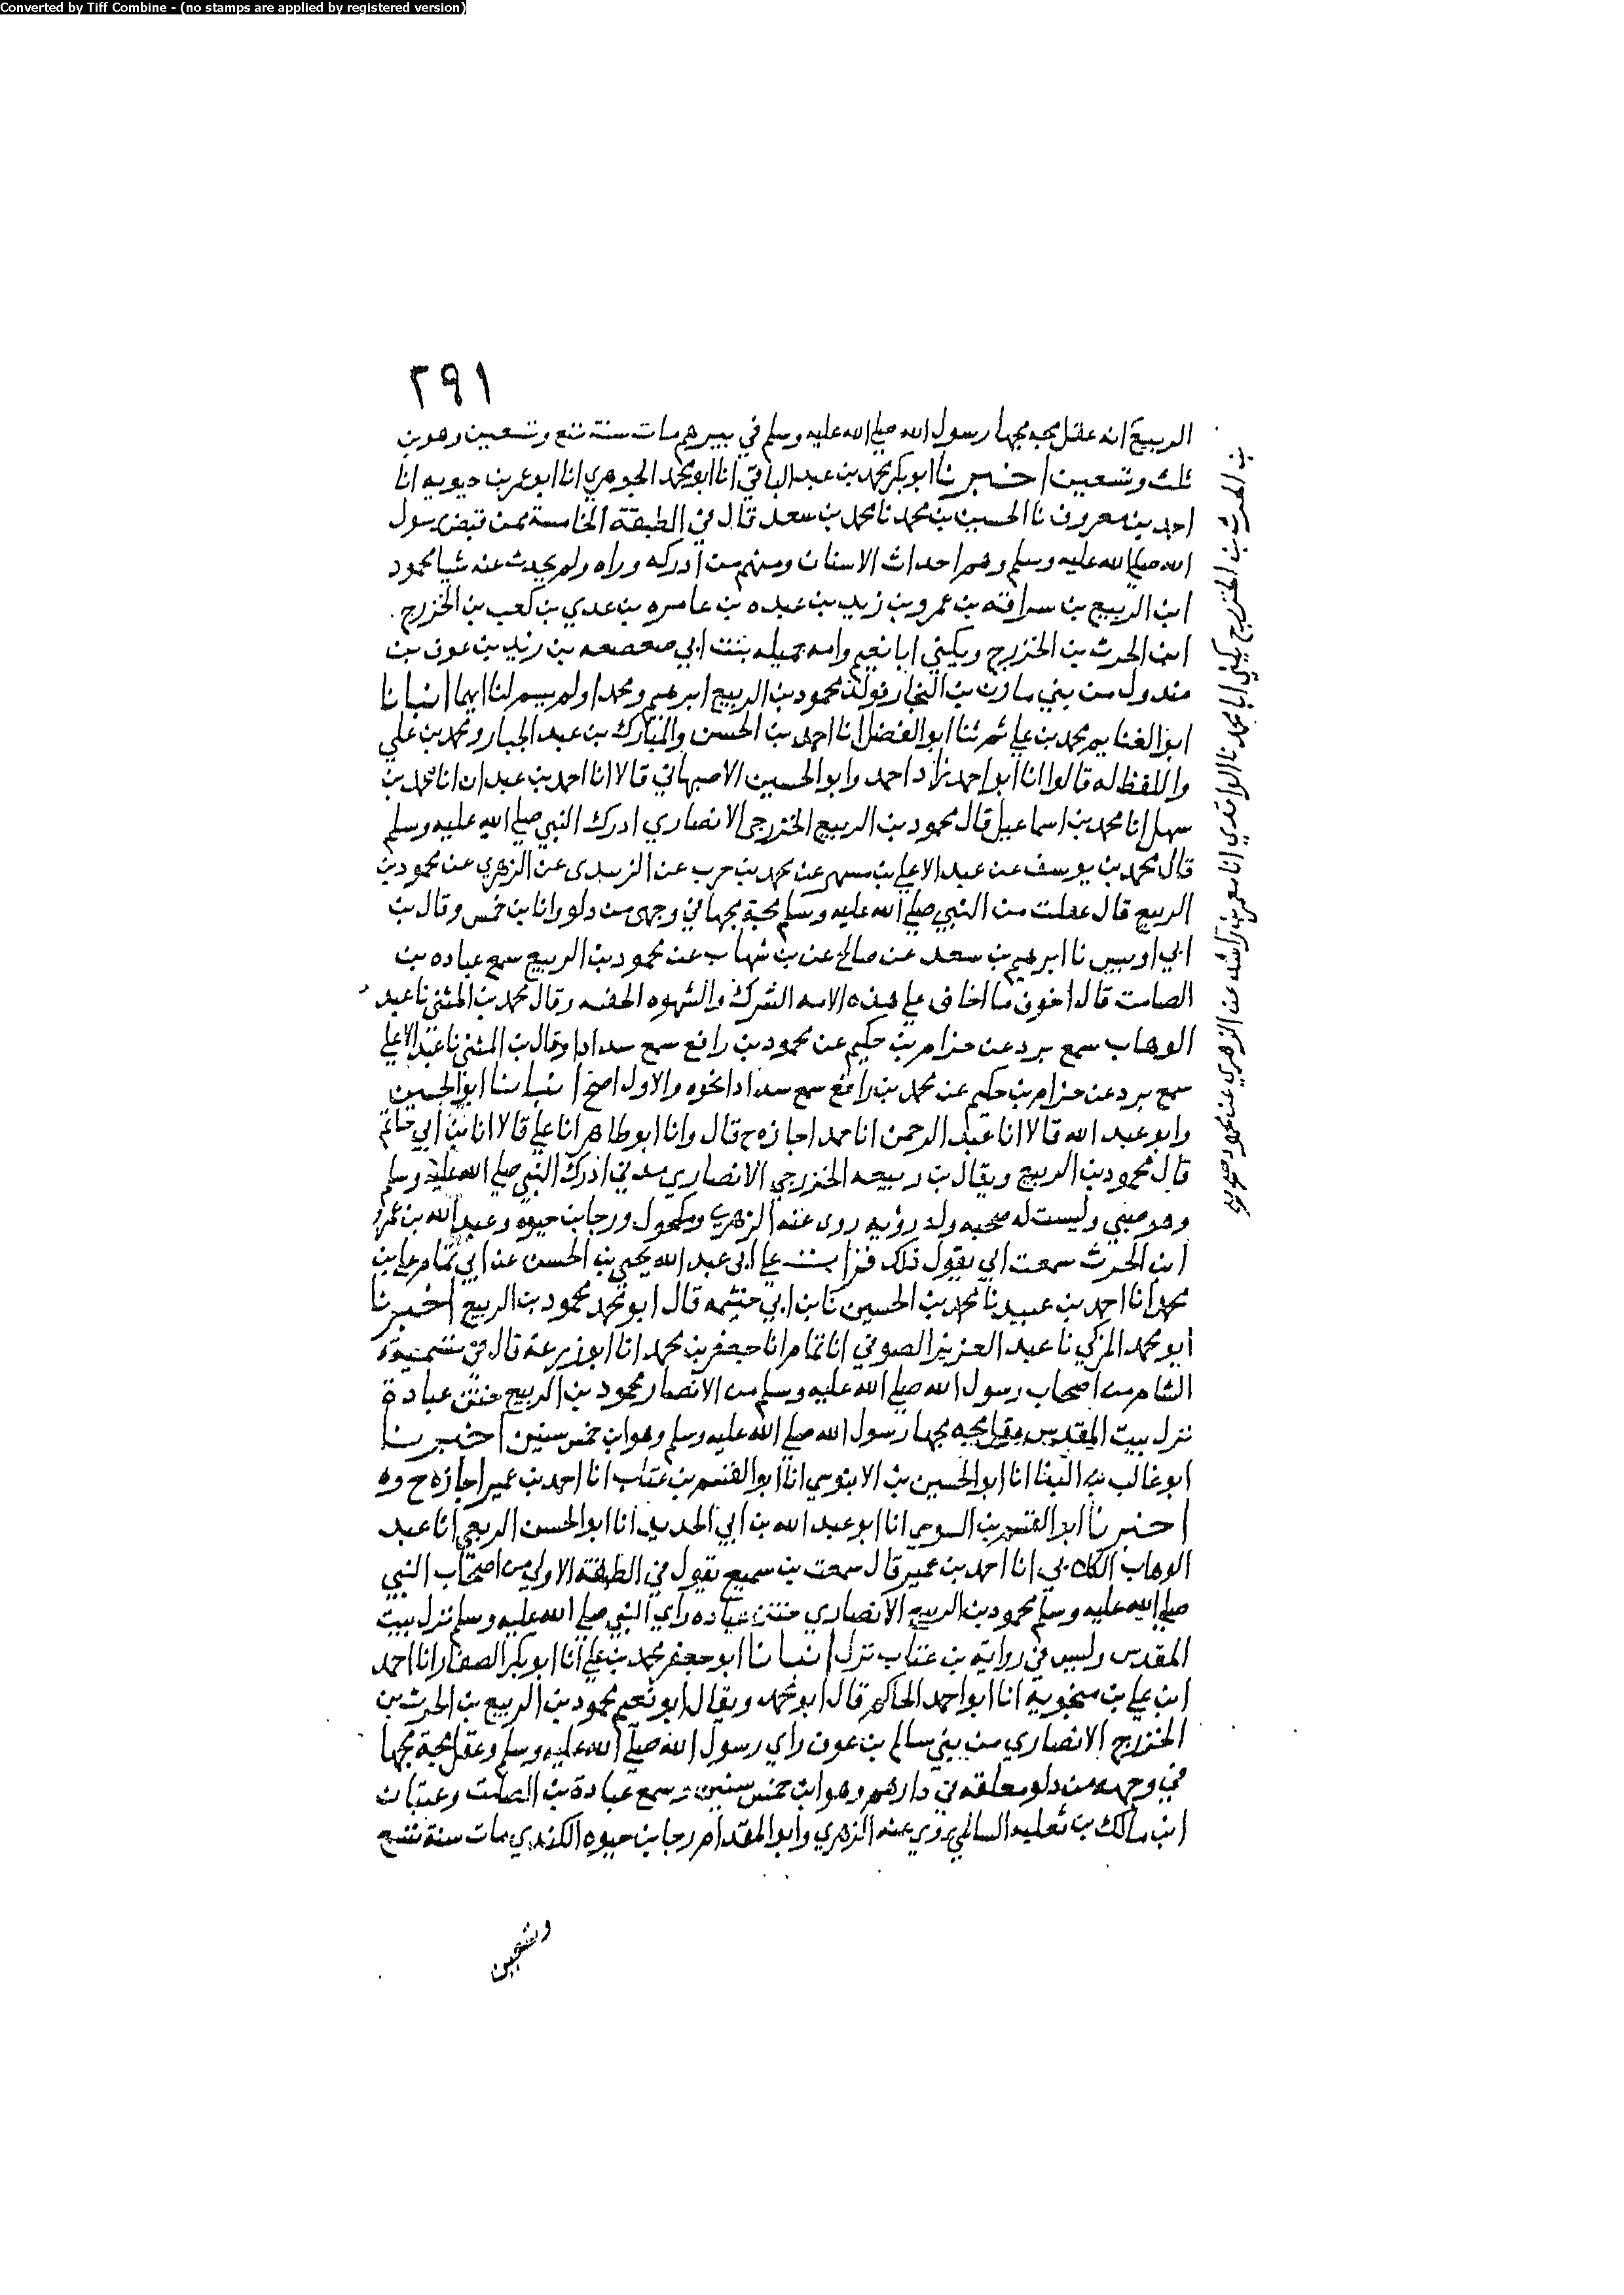 Converted by Tiff Combine - (no stamps are applied by registered version)
٢٩١
الربيع انه عقل مجه مجها رسول الله صلي الله عليه وسلم في بيرهم مات سنة تسع وتسعين وهو بن
ثلث وتسعين اخبرنا ابو بكر محمد بن عبد الباقي انا ابو محمد الجوهري انا ابو عمر بن حيويه انا
احمد بن معروف نا الحسين بن محمد نا محمد بن سعد قال في الطبقة الخامسة ممن قبض رسول
الله صلي الله عليه وسلم وهم احداث الاسنان ومنهم من ادركه وراه ولم يحدث عنه شيا محمود
ابن الربيع بن سراقه بن عمرو بن زيد بن عبده بن عامره بن عدي بن كعب بن الخزرج
ابن الحرث بن الخزرج ويكني ابا نعيم وامه جميله بنت ابي صعصعه بن زيد بن عوف بن
مندول من بني مازن بن النجار فولد محمود بن الربيع ابرهيم ومحمدا ولم يسم لنا امهما انبانا
ابو الغنايم محمد بن علي ثم ثنا ابو الفضل انا احمد بن الحسن والمبارك بن عبد الجبار ومحمد بن علي
واللفظ له قالوا انا ابو احمد زاد احمد وابو الحسين الاصبهاني قالا انا احمد بن عبدان انا محمد بن
سهل انا محمد بن اسماعيل قال محمود بن الربيع الخزرجي الانصاري ادرك النبي صلي الله عليه وسلم
قال محمد بن يوسف عن عبد الاعلي بن مسهر عن محمد بن حرب عن الزبيدى عن الزهري عن محمود بن
الربيع قال عقلت من النبي صلي الله عليه وسلم مجة مجها في وجهى من دلو وانا بن خمس وقال بن
ابي اويس نا ابرهيم بن سعد عن صالح عن بن شهاب عن محمود بن الربيع سمع عباده بن
الصامت قال اخوف ما اخاف علي هذه الامه الشرك والشهوه الخفيه وقال محمد بن المثني نا عبد
الوهاب سمع برد عن حزام بن حكيم عن محمود بن رافع سمع شدادا وقال بن المثني نا عبد الاعلي
سمع برد عن حزام بن حكيم عن محمد بن رافع سمع شدادا نحوه والاول اصح انبانا ابو الحسين
وابو عبد الله قالا انا عبد الرحمن انا حمد اجازه ح قال وانا ابو طاهر انا علي قالا انا بن ابي حاتم
قال محمود بن الربيع ويقال بن ربيعه الخزرجي الانصاري مدني ادرك النبي صلي الله عليه وسلم
وهو صبي وليست له صحبه وله رؤيه روى عنه الزهري ومكحول ورجا بن حيوه وعبد الله بن عمرو
ابن الحرث سمعت ابي يقول ذلك قرات علي ابي عبد الله يحيي بن الحسن عن ابي تمام علي بن
محمد انا احمد بن عبيد نا محمد بن الحسين نا بن ابي خيثمه قال ابو محمد محمود بن الربيع اخبرنا
ابو محمد المزكي نا عبد العزيز الصوفي انا تمام انا جعفر بن محمد انا ابو زرعة قال في تسمية
الشام من اصحاب رسول الله صلي الله عليه وسلم من الانصار محمود بن الربيع ختن عبادة
نزل بيت المقدس مجه مجها رسول الله صلي الله عليه وسلم وهو ابن خمس سنين اخبرنا
ابو غالب بن البنا انا ابو الحسين بن الابنوسي انا ابو القسم بن عتاب انا احمد بن عمير اجازه ح
اخبرنا ابو القسم بن السوسي انا ابو عبد الله بن ابي الحديد انا ابو الحسن الربعي انا عبد
الوهاب الكلابي انا احمد بن عمير قال سمعت بن سميع يقول في الطبقة الاولي من اصحاب النبي
صلي الله عليه وسلم محمود بن الربيع الانصاري ختن عباده راي النبي صلي الله عليه وسلم نزل بيت
المقدس وليس في رواية بن عتاب نزل انبانا ابو جعفر محمد بن علي انا ابو بكر الصفار انا احمد
ابن علي بن منجويه انا ابو احمد الحاكم قال ابو محمد ويقال ابو نعيم محمود بن الربيع بن الحرث بن
الخزرج الانصاري من بني سالم بن عوف راي رسول الله صلي الله عليه وسلم وعقل مجة مجها
في وجهه من دلو معلقه في دارهم وهو ابن خمس سنين سمع عبادة بن الصامت وعتبان
ابن مالك بن ثعلبه السالمي روي عنه الزهري وابو المقدام رجا بن حيوه الكندي مات سنة تسع
وتسعين
بن الحرث بن الخزرج يكني ابا محمد نا الواقدي انا معمر بن راشد عن الزهري عن محمود